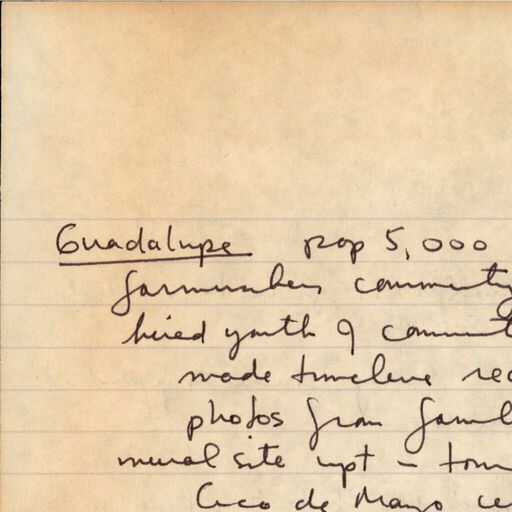 Guadalupe pop 5,000
farmworkers community
hired youth of communit
made timeline rec
photos from famil
mural site upt - tow
Cinco de Mayo ce